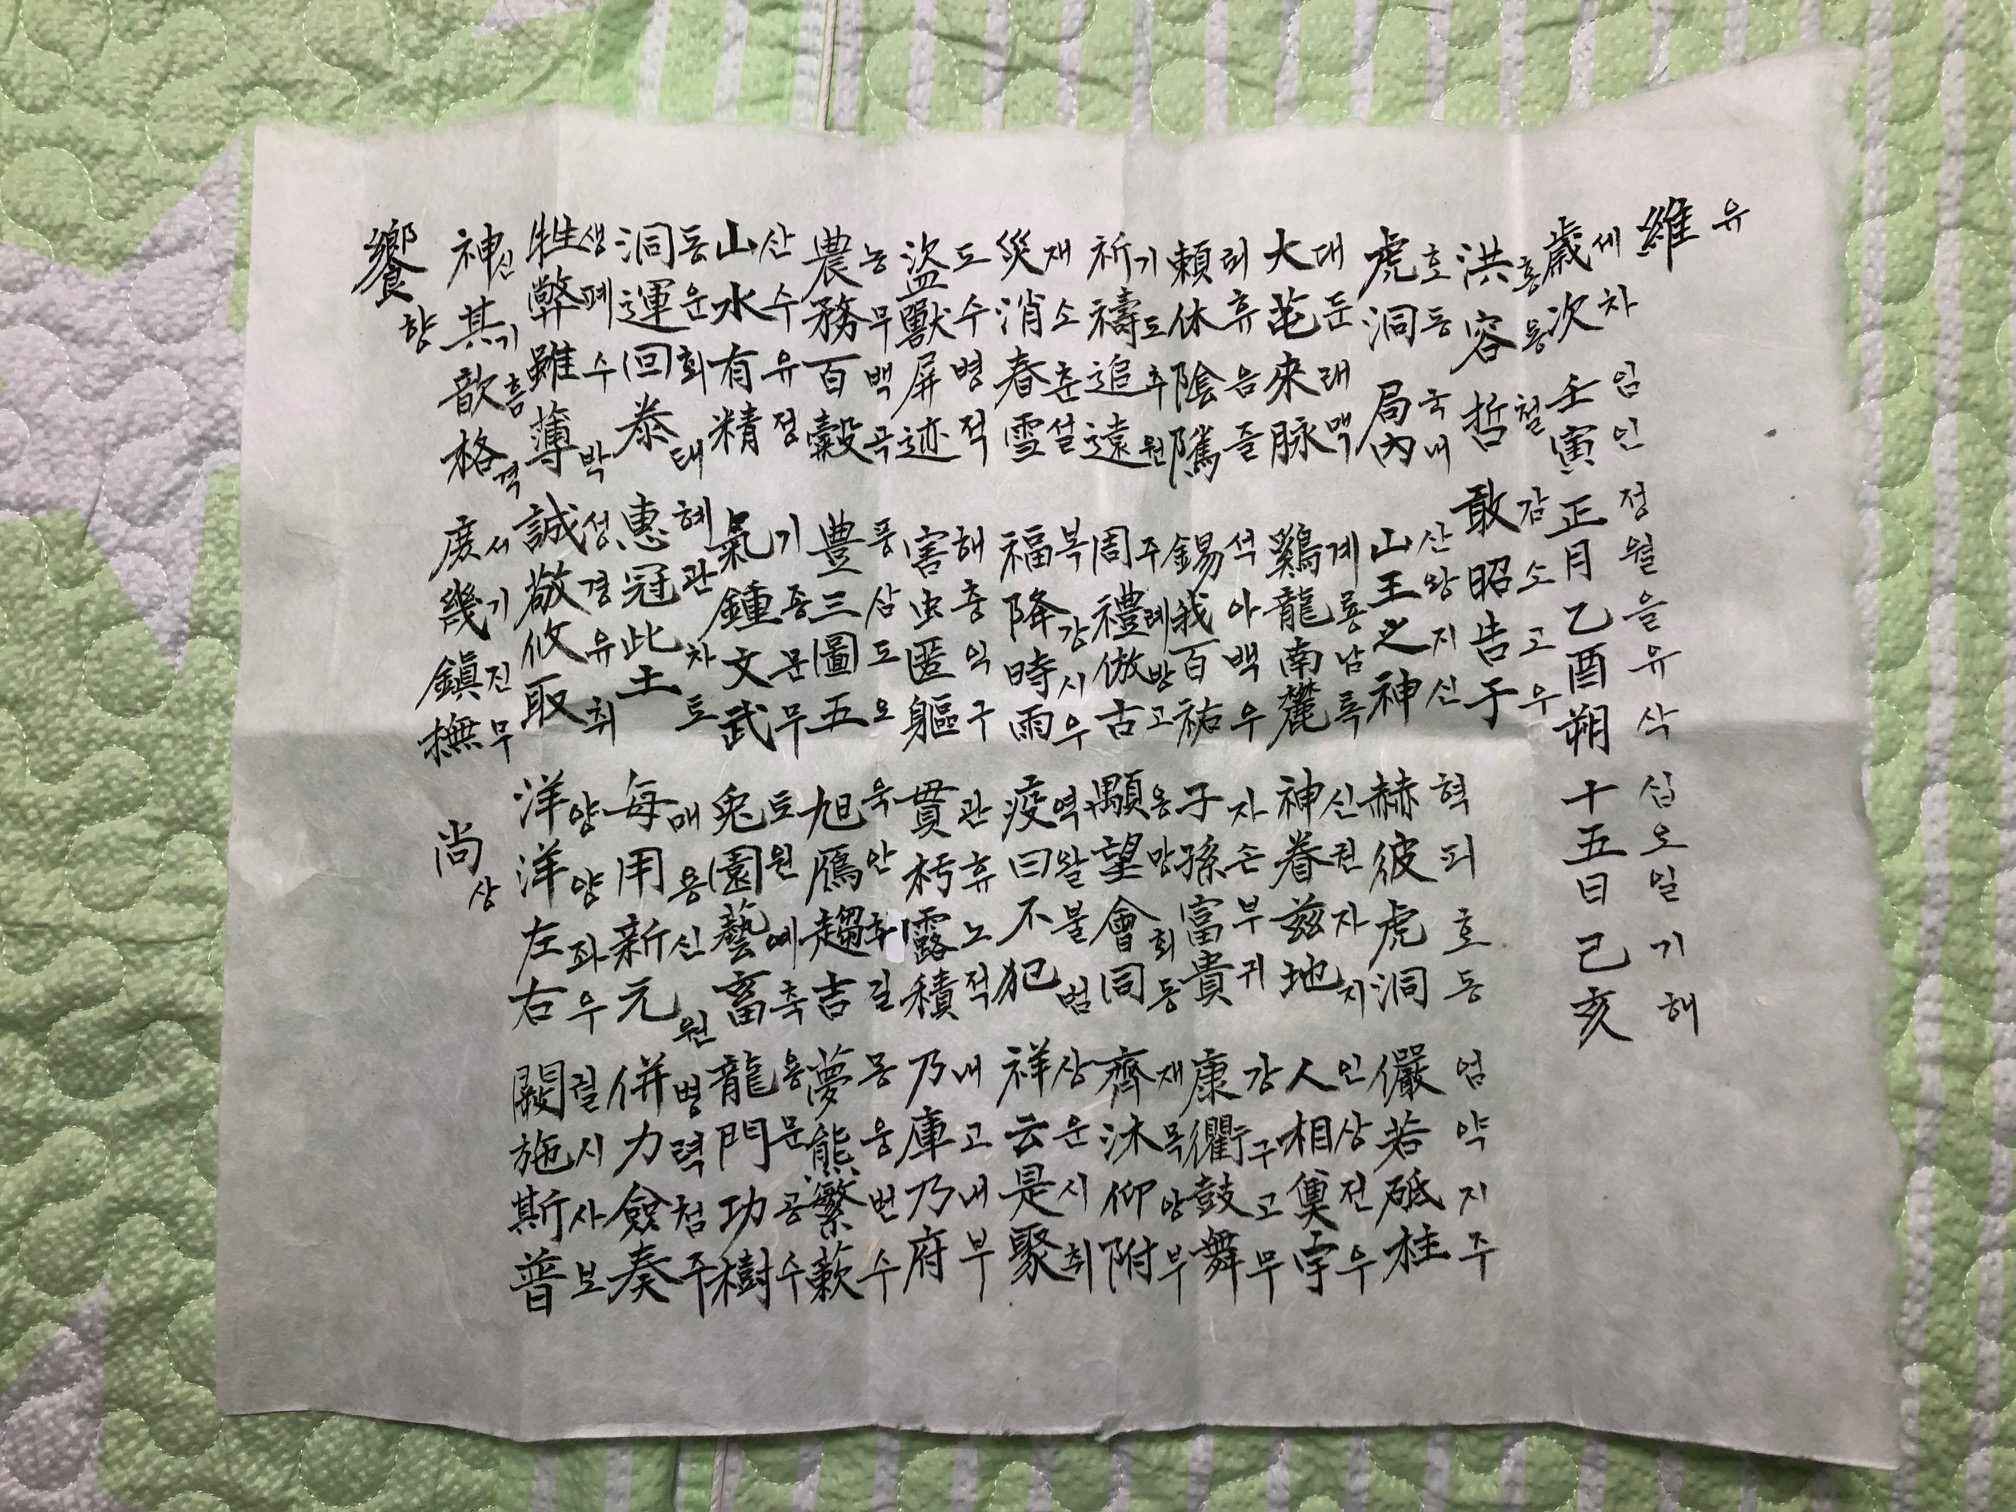 維
유
歲次 壬寅 正月乙酉朔 十五日己亥
세차 임인 정월을유삭 십오일기해
洪容哲 敢昭告于
홍용철 감소고우
虎洞局內 山王之神 赫彼虎洞 儼若砥柱
호동국내 산왕지신 혁피호동 엄약지주
大芚來脉 鷄龍南麓 神眷玆地 人相奠宇
대둔래맥 계룡남록 신권자지 인상전우
賴休陰騭 錫我百祐 子孫富貴 康衢鼓舞
뢰휴음즐 석아백우 자손부귀 강구고무
祈禱追遠 周禮倣古 顒望會同 齊沐仰附
기도추원 주례방고 옹망회동 재목앙부
災消春雪 福降時雨 疫曰不犯 祥云是聚
재소춘설 복강시우 역왈불범 상운시취
盜獸屏迹 害虫匿軀 貫朽露積 乃庫乃府
도수병적 해충익구 관휴노적 내고내부
農務百穀 豊三圖五 旭鴈趨吉 夢熊繁蔌
농무백곡 풍삼도오 욱안추길 몽웅번수
山水有精 氣鍾文武 兎園藝畜 龍門功樹
산수유정 기종문무 토원예축 용문공수
洞運回泰 惠冠此土 每用新元 併力僉奏
동운회태 혜관차토 매용신원 병력첨주
牲弊雖薄 誠敬攸取 洋洋左右 闋施斯普
생폐수박 성경유취 양양좌우 결시사보
神其歆格 庶幾鎭撫 尚
신기흠격 서기진무 상
饗
향